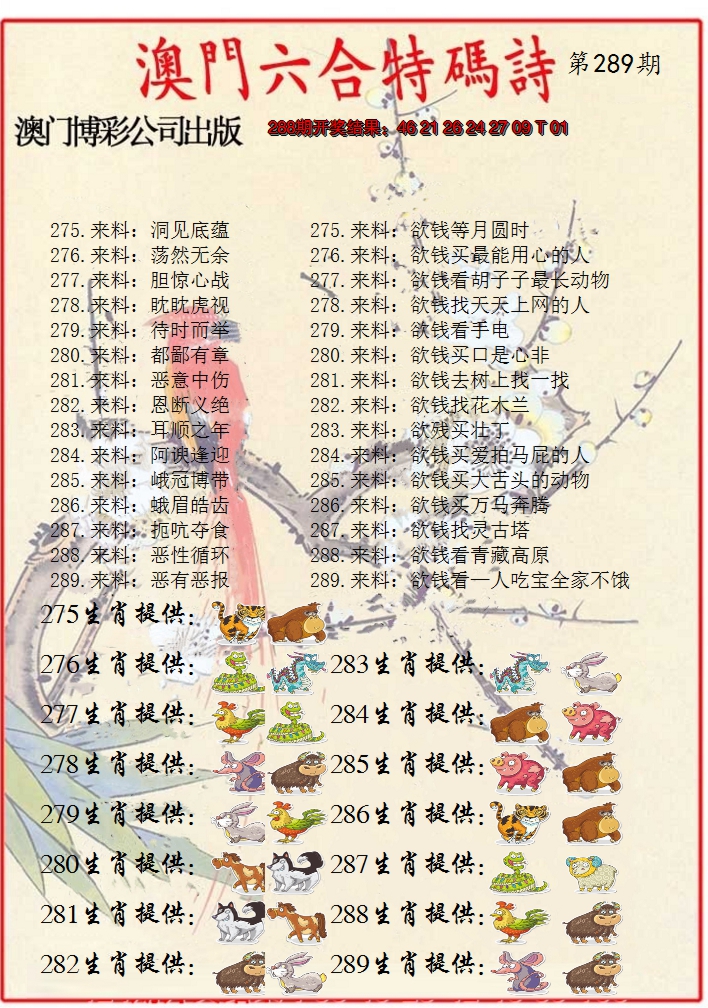 澳門六合特碼詩 第289期
澳门博彩公司出版 288期开奖结果：46 21 26 24 27 09 T 01
275.来料：洞见底蕴 275.来料：欲钱等月圆时
276.来料：荡然无余 276.来料：欲钱买最能用心的人
277.来料：胆惊心战 277.来料：欲钱看胡子子最长动物
278.来料：眈眈虎视 278.来料：欲钱找天天上网的人
279.来料：待时而举 279.来料：欲钱看手电
280.来料：都鄙有章 280.来料：欲钱买口是心非
281.来料：恶意中伤 281.来料：欲钱去树上找一找
282.来料：恩断义绝 282.来料：欲钱找花木兰
283.来料：耳顺之年 283.来料：欲残买壮丁
284.来料：阿谀逢迎 284.来料：欲钱买爱拍马屁的人
285.来料：峨冠博带 285.来料：欲钱买大舌头的动物
286.来料：蛾眉皓齿 286.来料：欲钱买万马奔腾
287.来料：扼吭夺食 287.来料：欲钱找灵古塔
288.来料：恶性循环 288.来料：欲钱看青藏高原
289.来料：恶有恶报 289.来料：欲钱看一人吃宝全家不饿
275生肖提供：
276生肖提供： 283生肖提供：
277生肖提供： 284生肖提供：
278生肖提供： 285生肖提供：
279生肖提供： 286生肖提供：
280生肖提供： 287生肖提供：
281生肖提供： 288生肖提供：
282生肖提供： 289生肖提供：